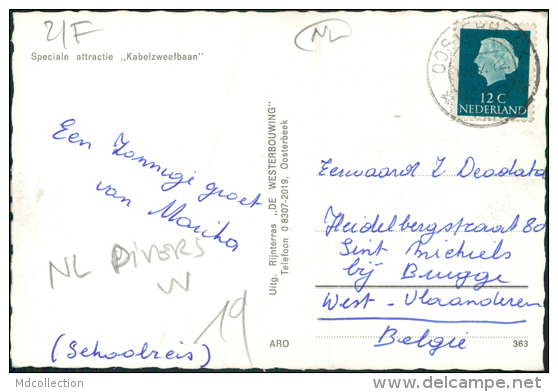 2/F
NL
Speciale attractie „Kabelzweefbaan"
OOSTERBEEK
12 C
NEDERLAND
Een zonnige groet
van Marika
NL DIVERS
19
(Schoolreis)
Uitg. Rijnterras „DE WESTERBOUWING"
Telefoon 0 8307-2019, Oosterbeek
Eerwaard Z Deodata
Heidelbergstraat 80
Sint Michiels
bij Brugge
West-Vlaanderen
België
ARO
363
Mdcollection
www.delcampe.net